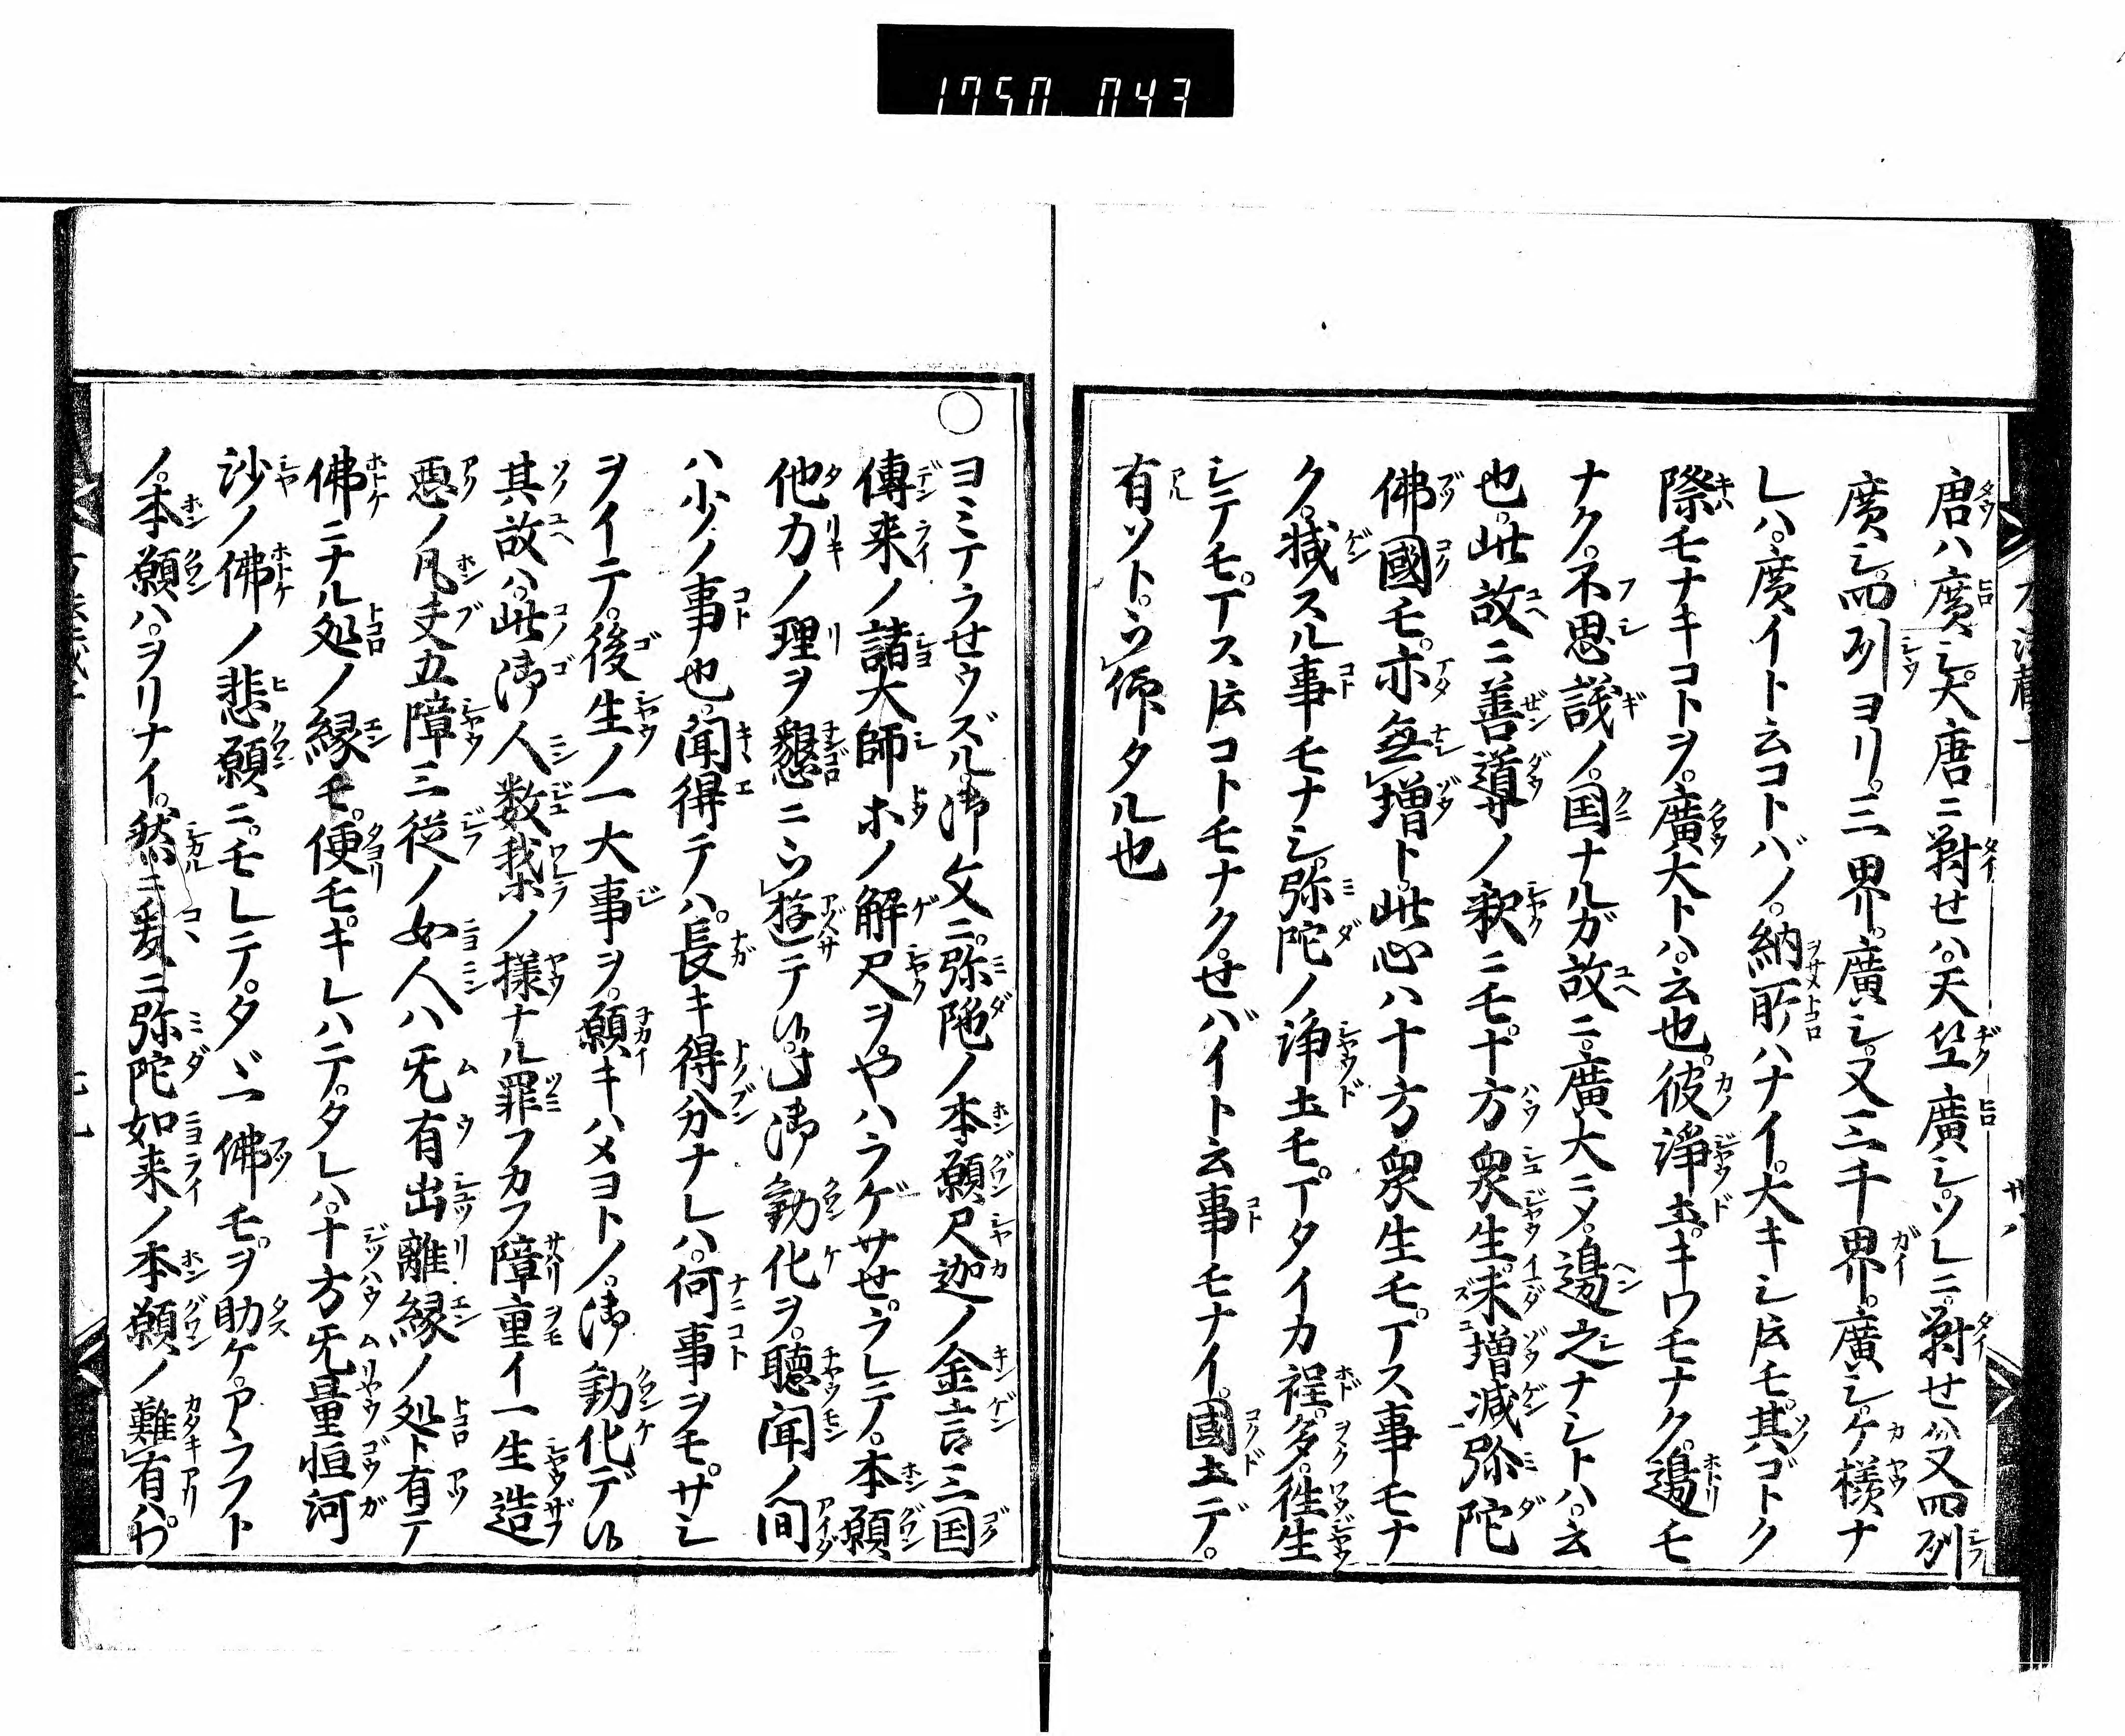 1750 043
唐ハ廣シ。大唐ニ對せハ。天竺廣シ。ソレニ。對せハ又四列
廣シ。四列ヨリ。三界。廣シ。又三千界。廣シ。ケ様ナ
レハ。廣イト云コトバノ。納所ハナイ。大キシ𪜈モ。其ゴトク
際モナキコトヲ。廣大トハ。云也。彼浄土。キワモナク。邊モ
ナク。不思議ノ。国ナルガ故ニ。廣大ニメ。邊之ナシトハ。云
也。此故ニ善導ノ釈ニモ。十方衆生。未増減弥陀
佛國モ。亦無増ト。此心ハ十方衆生モ。丁ス事モナ
ク。减スル事モナシ。弥陀ノ浄土モ。丁タイカ程。多。徃生
シテモ。丁ス𪜈コトモナク。せバイト云事モナイ。國土デ。
有ソト。ウ仰タル也
○ヨミテラせウズル。御文ニ。弥陀ノ本願尺迦ノ金言三国
傳来ノ諸大師ホノ解尺ヲ。やハラゲサせ。ラレテ。本願
他力ノ理ヲ懇ニウ遊テ候。此御勧化ヲ。聴聞ノ間
ハ少ノ事也。聞得テハ。長キ得分ナレハ。何事ヲモ。サシ
ヲイテ。後生ノ一大事ヲ。願キハメヨトノ。御勧化デ候
其故ハ。此御人数我ホノ様ナル罪フカフ障重イ一生造
悪ノ凡夫五障三従ノ女人ハ旡有出離縁ノ処ト有テ
佛ニナル処ノ縁モ。便モ。キレハテ。タレハ。十方旡量恒河
沙ノ佛ノ悲願ニ。モレテ。タヾ一佛モ。ヲ助ケ。アラフト
ノ。本願ハ。ヲリナイ。然ニ爰ニ弥陀如来ノ本願ノ難有ハ。